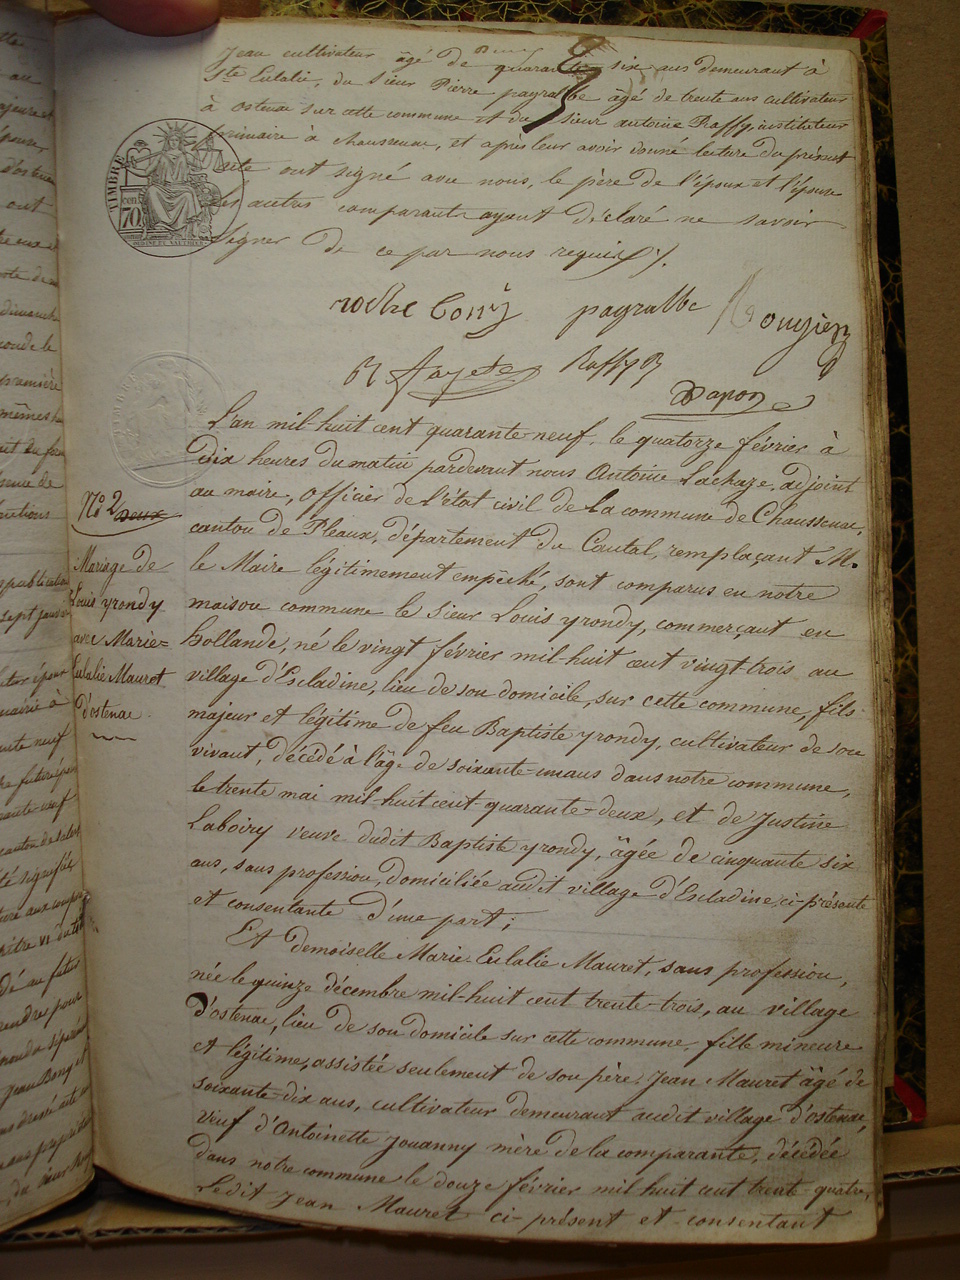 Jean cultivateur âgé de quarante six ans demeurant à
Ste Eulalie, du sieur Pierre payralbe âgé de trente ans cultivateur
à ostenac sur cette commune et du sieur antoine Raffy, instituteur
primaire à chaussenac, et après leur avoir donné lecture du présent
acte ont signé avec nous, le père de l'époux et l'épouse
les autres comparants ayant déclaré ne savoir
signer de ce par nous requis
payralbe Rougier
Raffy
Dapon
TIMBRE
cen 70
L'an mil-huit cent quarante-neuf, le quatorze février à
dix heures du matin pardevant nous Antoine Lachaze, adjoint
au maire, officier de l'état civil de La commune de Chaussenac,
canton de Pleaux, département du Cantal, remplaçant M.
le Maire légitimement empêché, sont comparus en notre
maison commune le sieur Louis yrondy, commerçant en
hollande, né le vingt février mil-huit cent vingt-trois au
village d'Escladine, lieu de son domicile, sur cette commune, fils
majeur et légitime de feu Baptiste yrondy, cultivateur de son
vivant, décédé à l'âge de soixante-un ans dans notre commune,
le trente mai mil-huit cent-quarante-deux, et de Justine
Laboiry veuve dudit Baptiste yrondy, âgée de cinquante six
ans, sans profession, domiciliée audit village d'Escladine ci-présente
et consentante d'une part;
N° 2 deux
Mariage de
Louis yrondy
avec Marie=
Eulalie Mauret
d'ostenac.
Et demoiselle Marie-Eulalie Mauret, sans profession,
née le quinze décembre mil-huit cent trente-trois, au village
d'ostenac, lieu de son domicile sur cette commune, fille mineure
et légitime, assistée seulement de son père, Jean Mauret âgé de
soixante-dix ans, cultivateur demeurant audit village d'ostenac,
veuf d'Antoinette Jouanny mère de la comparante, décédée
dans notre commune le douze février mil huit cent trente-quatre,
Ledit Jean Mauret ci-présent et consentant